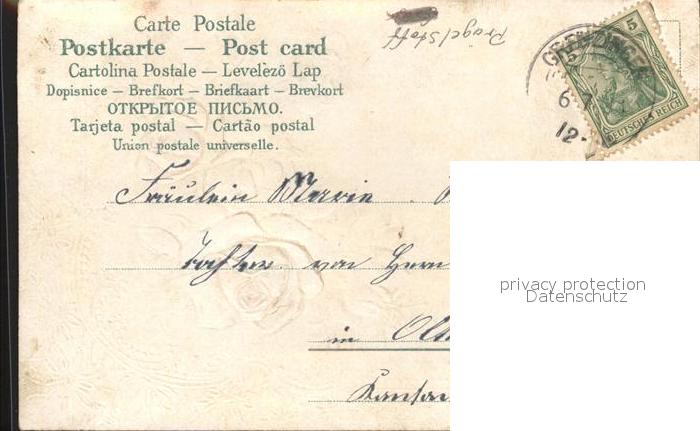 Carte Postale
Postkarte — Post card
Cartolina Postale — Levelèző Lap
Dopisnice — Brefkort — Briefkaart — Brevkort
ОТКРЫТОЕ ПИСЬМО.
Tarjeta postal — Cartão postal
Union postale universelle.
Prägelstoff
5
5
DEUTSCHES REICH
6
12-
Fräulein Marie
Tochter von Herrn
in
privacy protection
Datenschutz